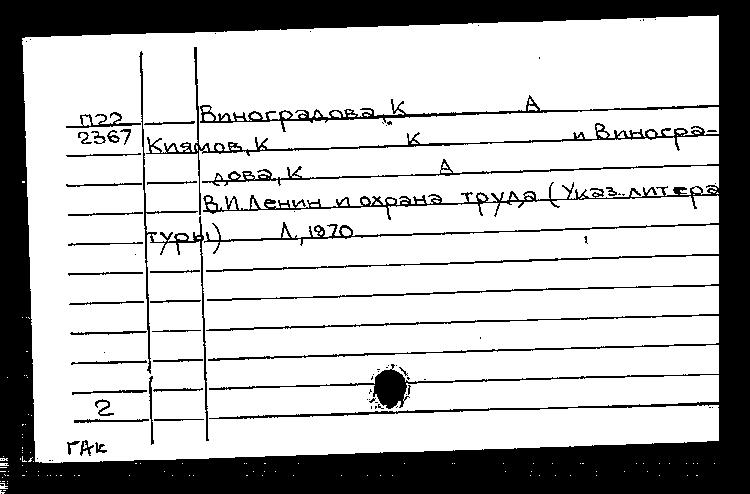 П22 Виноградова, К А
2367 Киямов, К К и Виногра-
дова, К А
В.И. Ленин и охрана труда (Указ. литера
туры) Л, 1970
2
ГАК